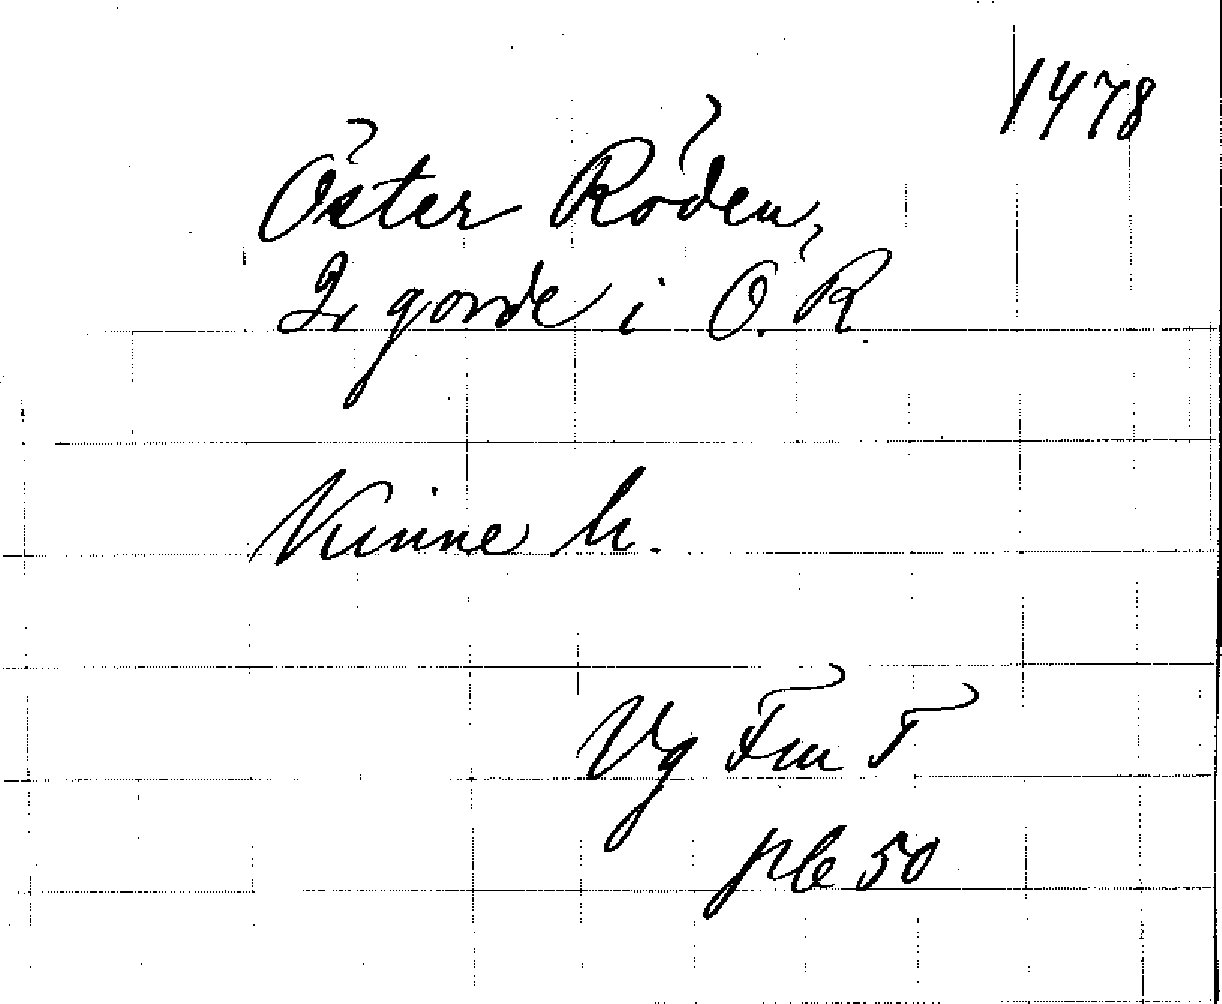 1478
Öster Röden,
2 gorde i Ö. R.
Kinne h.
Vg Fm T
plc 50